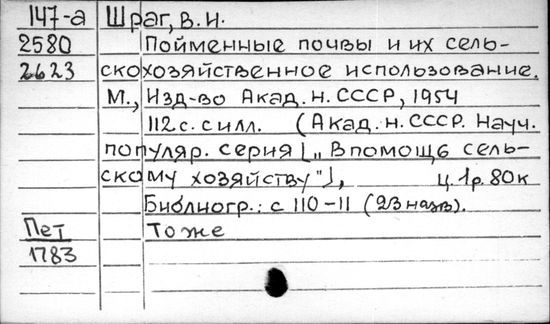 147-а Шраг, В.И.
2580 Пойменные почвы и их сель-
2623 скохозяйственное использование.
М., Изд-во Акад. н. СССР, 1954
112 с. с илл. (Акад. н. СССР. Науч.
популяр. серия [„В помощь сель-
скому хозяйству"], ц. 1 р. 80 к
Библиогр.: с 110-11 (23 назв).
Пет То же
1783